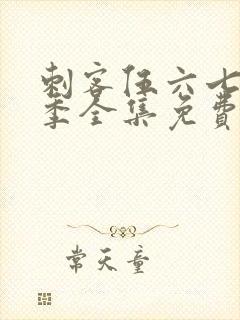 刺客伍六七
季全集免费
常天童